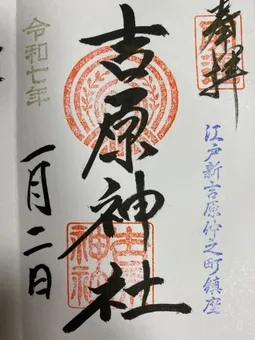 奉拝
江戸新吉原仲之町鎮座
吉原神社
吉原神社
令和七年
一月二日